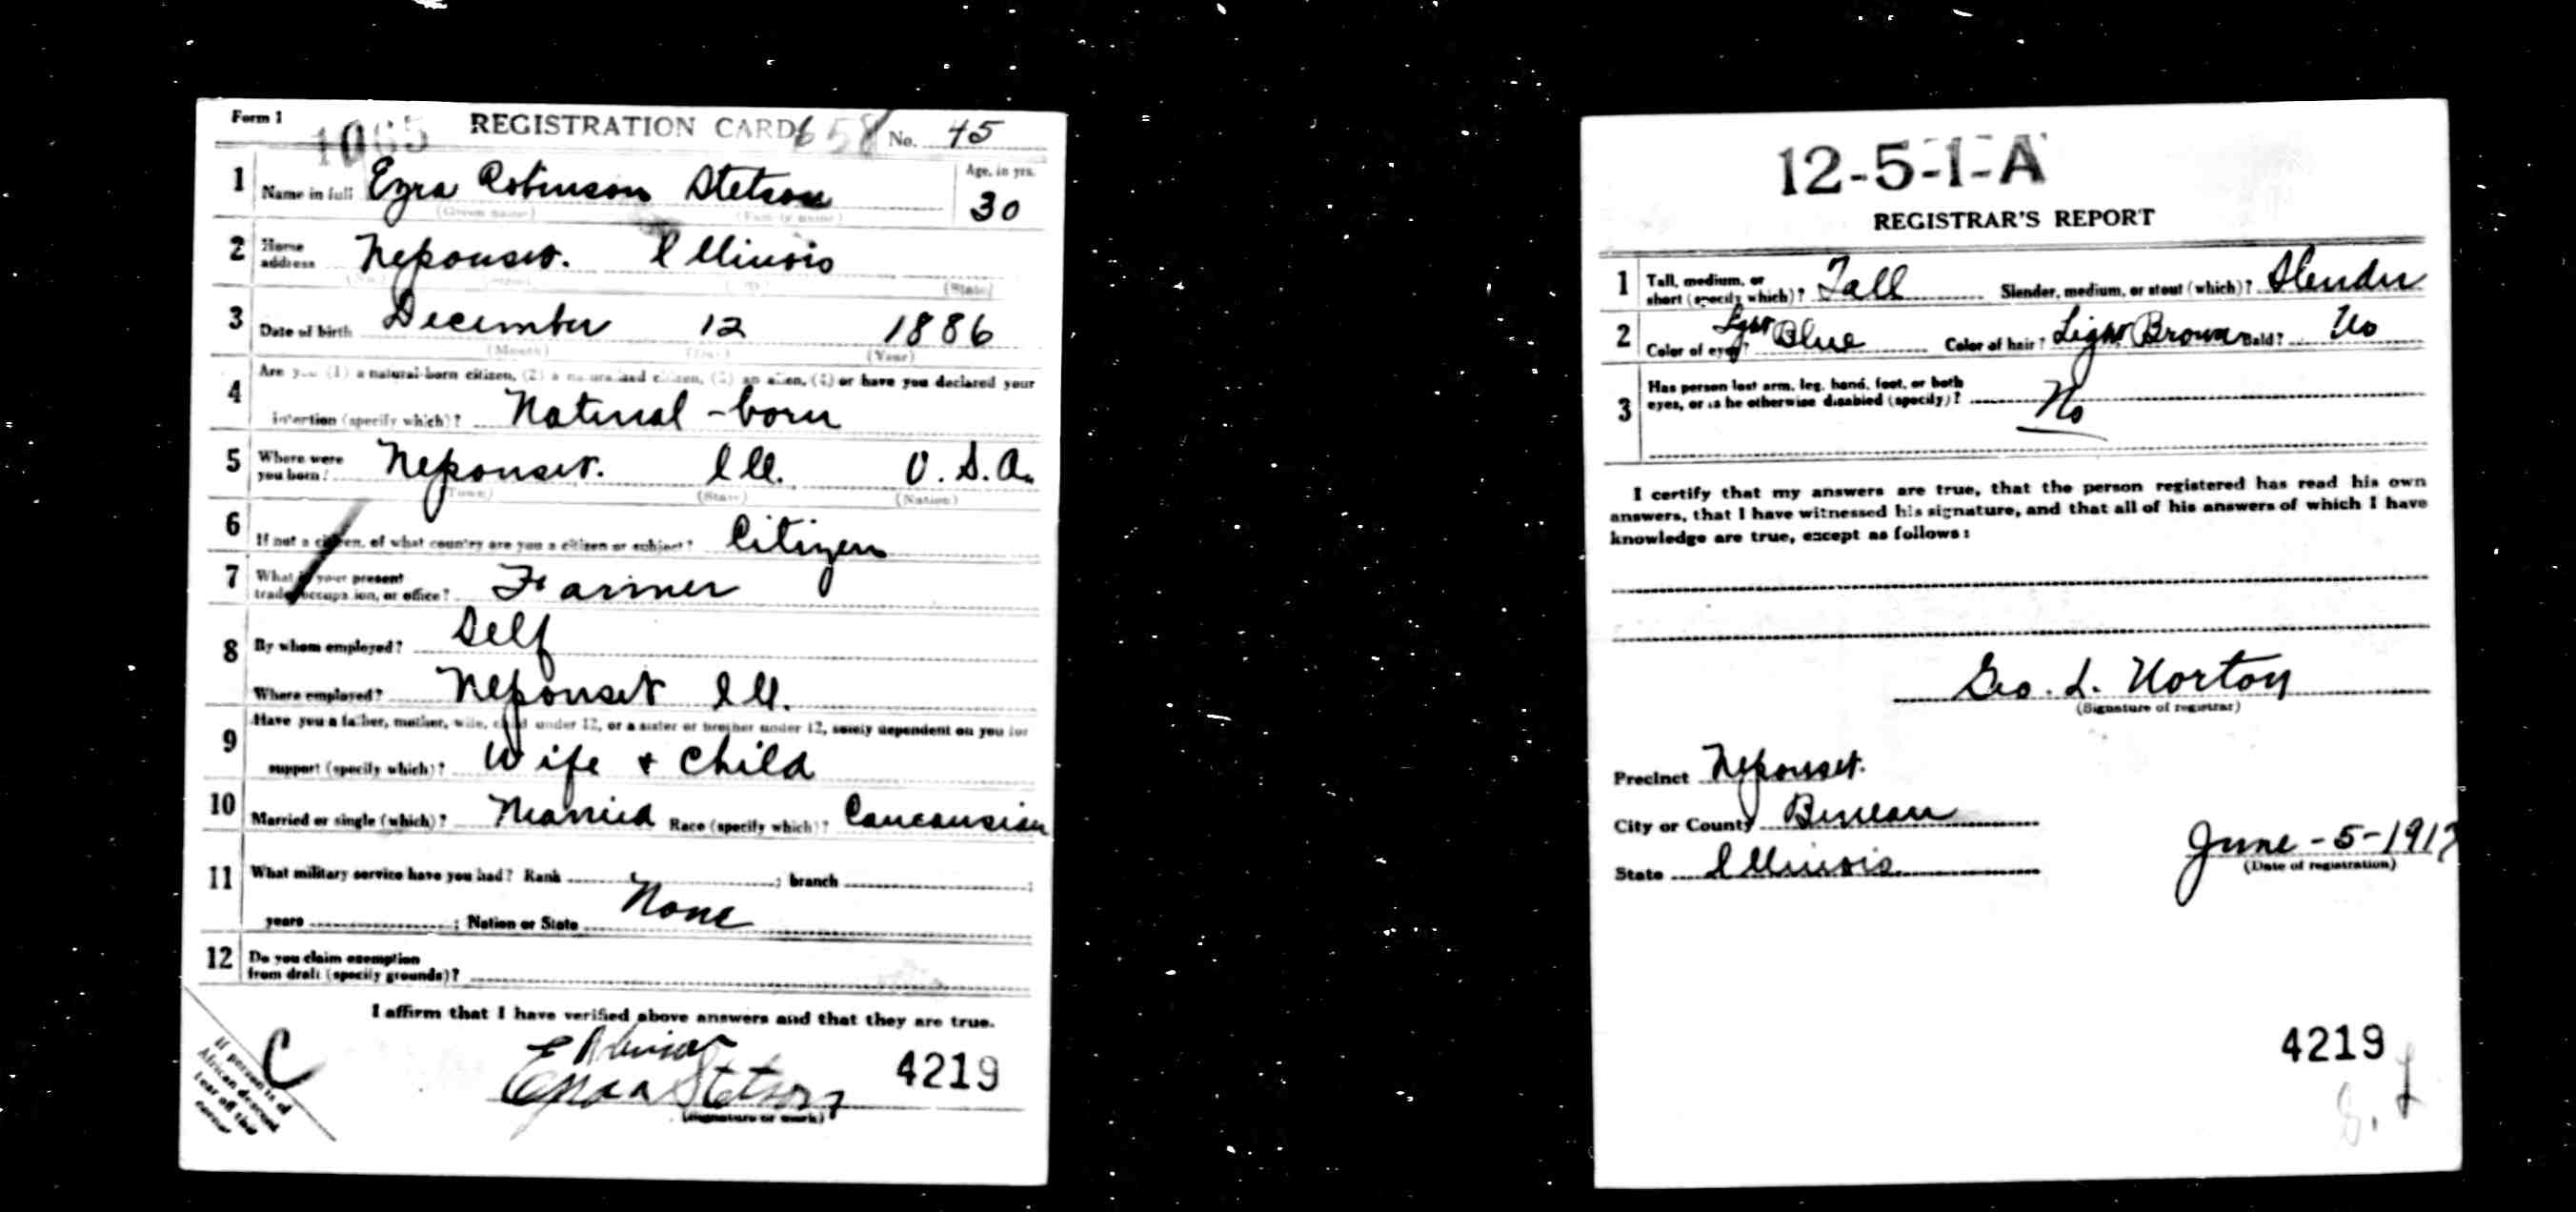 Form 1 1065 REGISTRATION CARD 658 No. 45
1 Name in full Ezra Robinson Stetson Age, in yrs. 30
(Given name) (Family name)
2 Home address Neponset. Illinois
(No.) (Street) (State)
3 Date of birth December 12 1886
(Month) (Day) (Year)
4 Are you (1) a natural-born citizen, (2) a naturalized citizen, (3) an alien, (4) or have you declared your
intention (specify which)? Natural-born
5 Where were you born? Neponset. Ill. U.S.A.
(Town) (State) (Nation)
6 If not a citizen, of what country are you a citizen or subject? Citizen
7 What is your present
trade, occupation, or office? Farmer
8 By whom employed? Self
Where employed? Neponset Ill.
9 Have you a father, mother, wife, child under 12, or a sister or brother under 12, solely dependent on you for
support (specify which)? Wife + Child
10 Married or single (which)? Married Race (specify which)? Caucausian
11 What military service have you had? Rank ; branch ;
years ; Nation or State None
12 Do you claim exemption
from draft (specify grounds)?
I affirm that I have verified above answers and that they are true.
E Robinson
Ezra Stetson 4219
(Signature or mark)
C
If person is of
African descent
tear off this
corner
12-5-1-A
REGISTRAR'S REPORT
1 Tall, medium, or
short (specify which)? Tall Slender, medium, or stout (which)? Slender
2 Color of eyes? Light Blue Color of hair? Light Brown Bald? No
3 Has person lost arm, leg, hand, foot, or both
eyes, or is he otherwise disabled (specify)? No
I certify that my answers are true, that the person registered has read his own
answers, that I have witnessed his signature, and that all of his answers of which I have
knowledge are true, except as follows:
Geo. L. Norton
(Signature of registrar)
Precinct Neponset.
City or County Bureau
State Illinois.
June-5-1917
(Date of registration)
4219